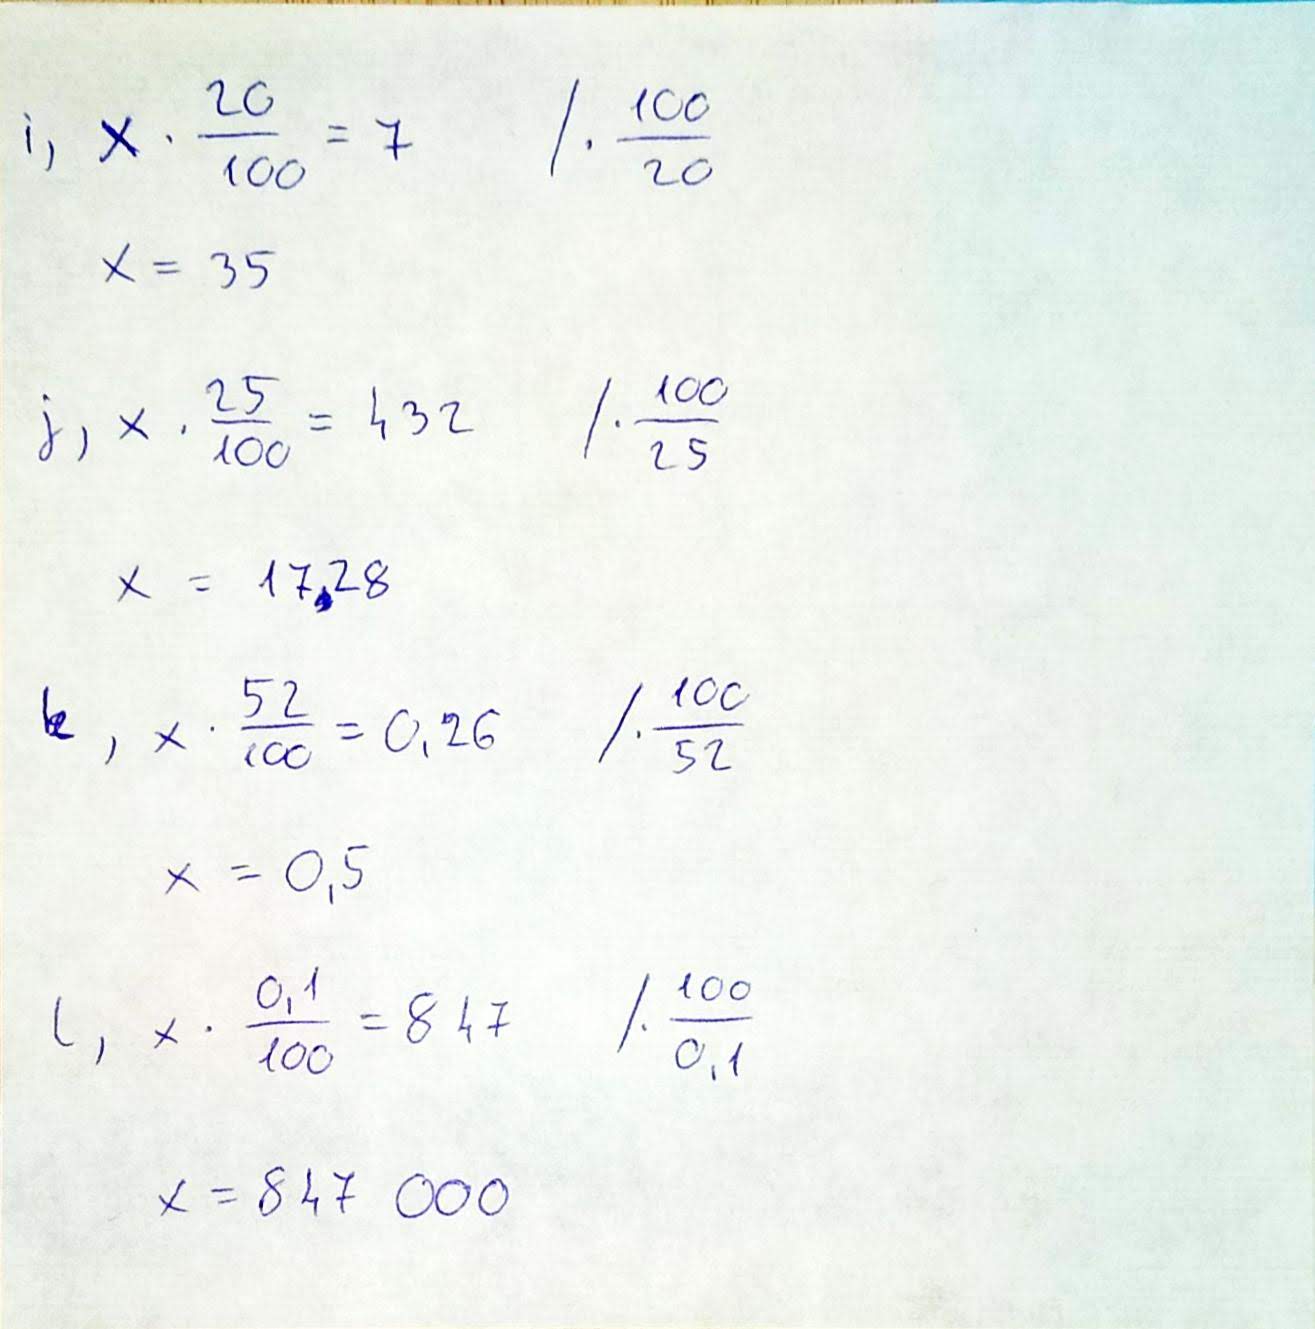 i, x · 20/100 = 7 /· 100/20
x = 35
j, x · 25/100 = 432 /· 100/25
x = 17,28
k, x · 52/100 = 0,26 /· 100/52
x = 0,5
l, x · 0,1/100 = 847 /· 100/0,1
x = 847 000